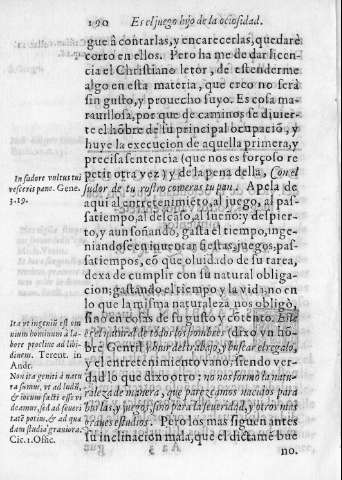 190 Es el juego hijo de la ociosidad.
gue â contarlas, y encarecerlas, quedarè
corto en ellos. Pero ha me de dar licen-
cia el Christiano letor, de estenderme
algo en esta materia, que creo no serà
sin gusto, y prouecho suyo. Es cosa ma-
rauillosa, por que de caminos se diuier-
te el hõbre de su principal ocupaciõ, y
huye la execucion de aquella primera, y
precisa sentencia (que nos es forçoso re
petir otra vez) y de la pena della, Con el
sudor de tu rostro comeras tu pan. Apela de
aqui al entretenimiẽto, al juego, al pas-
satiempo, al descãso, al sueño: y despier-
to, y aun soñando, gasta el tiempo, inge-
niandose en inuentar fiestas, juegos, pas-
satiempos, cõ que oluidado de su tarea,
dexa de cumplir con su natural obliga-
cion: gastando el tiempo y la vida no en
lo que la misma naturaleza nos obligò,
sino en cosas de su gusto y cõtento. Este
es el natural de todos los hombres (dixo vn hõ-
bre Gentil) huir del trabajo, y buscar el regalo,
y el entretenimiento vano, siendo ver-
dad lo que dixo otro: no nos formò la natu-
raleza de manera, que parezcamos nacidos para
burlas, y juegos, sino para la seueridad, y otros mas
graues estudios. Pero los mas siguen antes
su inclinacion mala, que el dictame bue
no.
In sudore vultus tui
vesceris pane. Gene.
3.19.
Ita vt ingeniũ est om
nium hominum à la-
bore procliue ad libi-
dinem. Terent. in
Andr.
Non ita geniti à natu
ra sumus, vt ad ludũ,
& iocum facti esse vi
deamur, sed ad seueri
tatẽ potiùs, & ad quæ
dam studia grauiora.
Cic. 1. Offic.